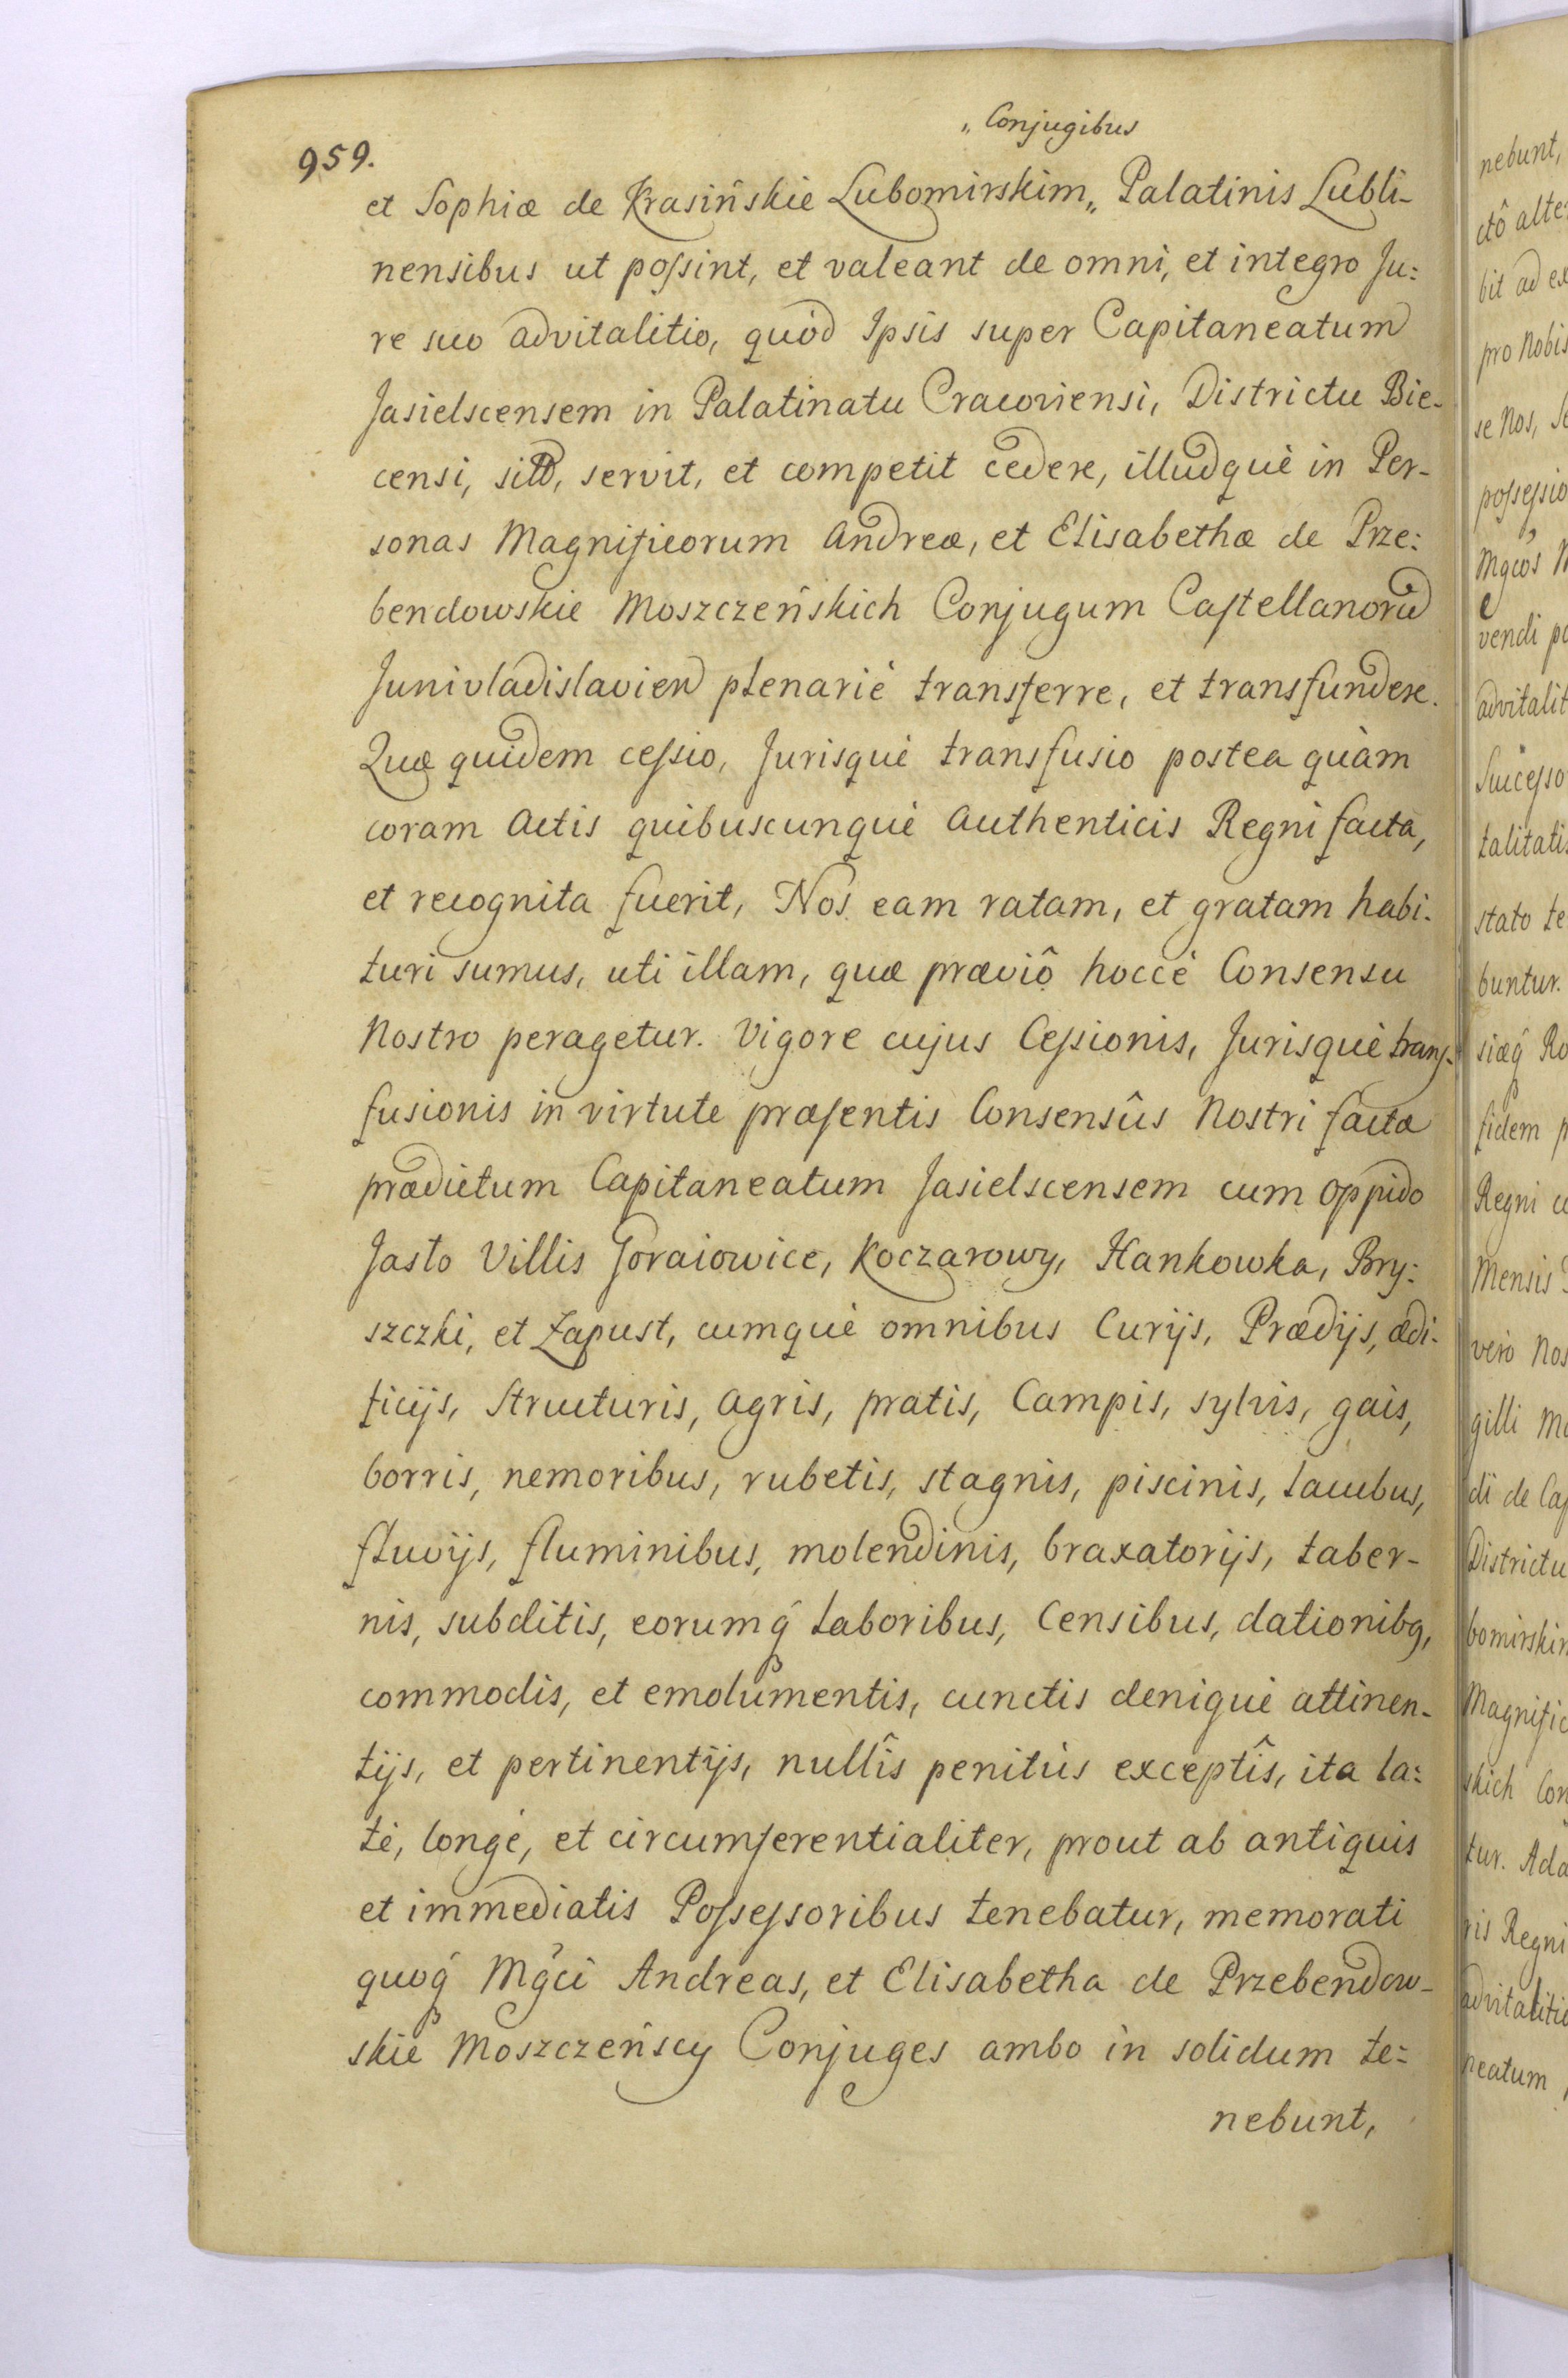 „ Conjugibus
959.
et Sophiæ de Krasińskie Lubomirskim„ Palatinis Lubli-
nensibus ut possint, et valeant de omni, et integro Ju:
re suo advitalitio, quód Ipsis super Capitaneatum
Jasielscensem in Palatinatu Cracoviensi, Districtu Bie-
censi, sito, servit, et competit cedere, illudquè in Per-
sonas Magnificorum Andreæ, et Elisabethæ de Prze:
bendowskie Moszczeńskich Conjugum Castellanorū
Junivladislavien plenariè transferre, et transfundere.
Quæ quidem cessio, Jurisquè transfusio postea quàm
coram Actis quibuscunquè Authenticis Regni facta,
et recognita fuerit, Nos eam ratam, et gratam habi-
turi sumus, uti illam, quæ præviô hoccè Consensu
Nostro peragetur. Vigore cujus Cessionis, Jurisquè trans-
fusionis in virtute præsentis Consensûs Nostri factæ
prædictum Capitaneatum Jasielscensem cum Oppido
Jasło Villis Goraiowice, Koczarowy, Hankowka, Bry:
szczki, et Zapust, cumquè omnibus Curijs, Prædijs, ædi-
ficijs, Structuris, Agris, pratis, Campis, sylvis, gais,
borris, nemoribus, rubetis, stagnis, piscinis, lacubus,
fluvijs, fluminibus, molendinis, braxatorijs, taber-
nis, subditis, eorumq́ laboribus, Censibus, dationibꝯ,
commodis, et emolumentis, cunctis deniquè attinen-
tijs, et pertinentijs, nullîs penitùs exceptîs, ita la:
tè, longè, et circumferentialiter, prout ab antiquis
et immediatis Possessoribus tenebatur, memorati
quoq́ Mgci Andreas, et Elisabetha de Przebendow-
skie Moszczeńscy Conjuges ambo in solidum te:
nebunt,